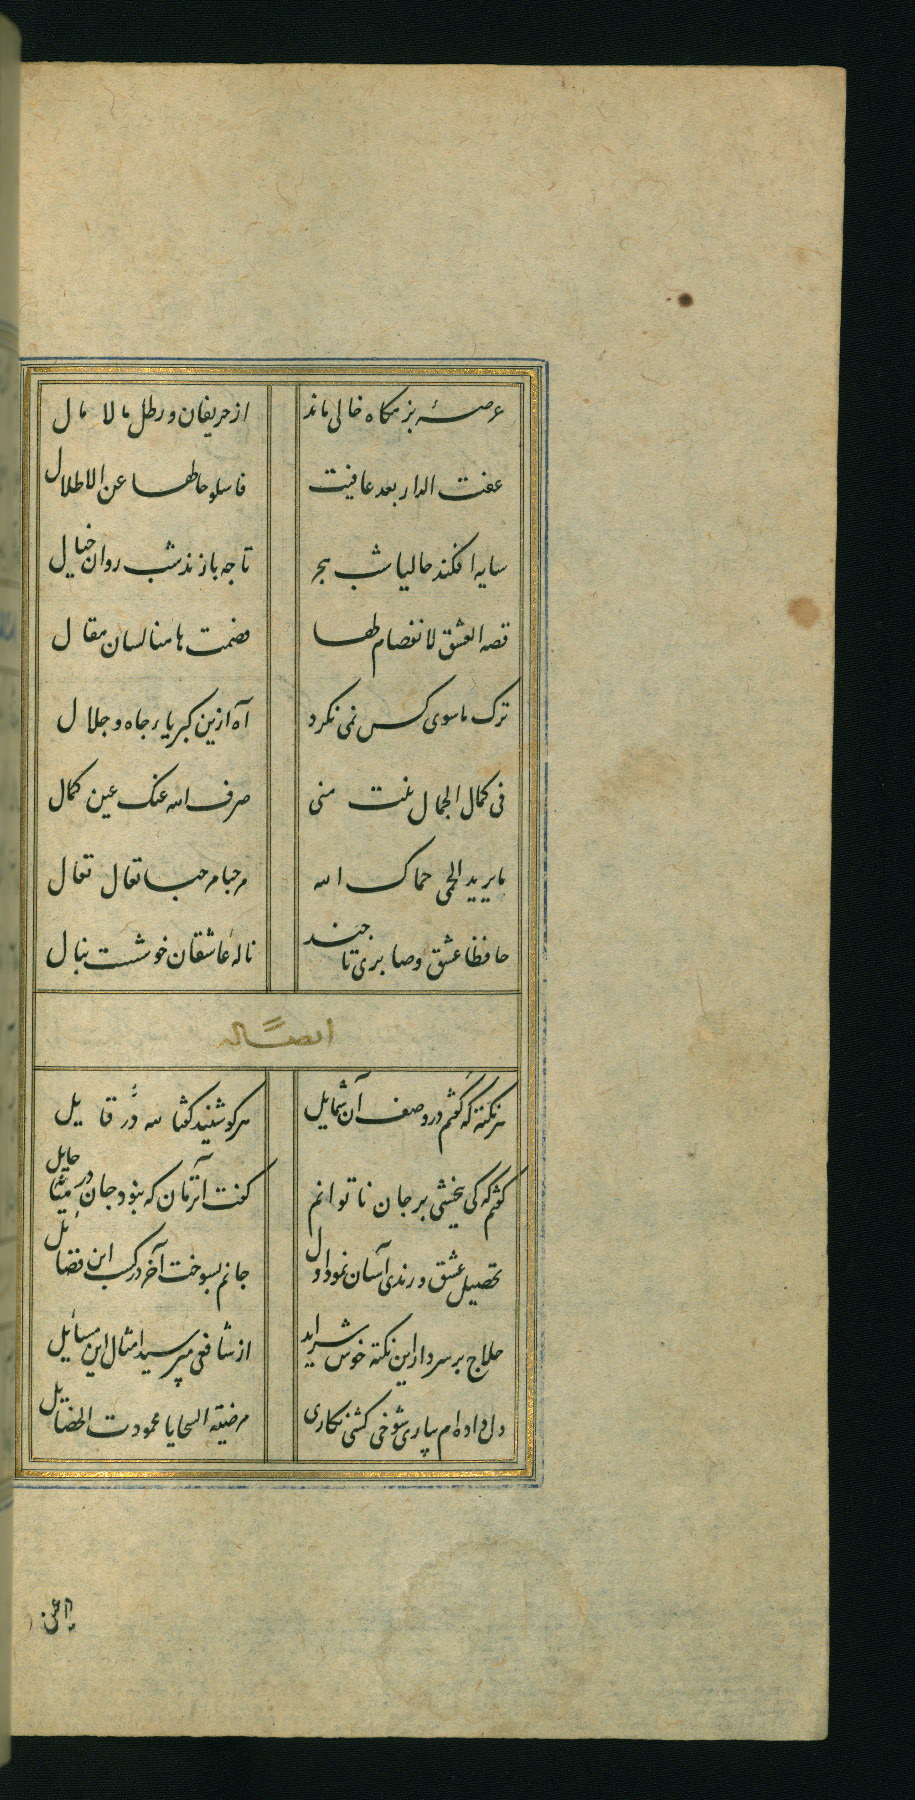 عرصهٔ بزمگاه خالی ماند
از حریفان و رطل مالا مال
عفت الدار بعد عافیت
فاسلو حالها عن الاطلال
سایه افکند حالیا شب هجر
تا چه بازند شب روان خیال
قصه العشق لا انفصام لها
فصمت هاهنا لسان مقال
ترک ما سوی کس نمی نکرد
آه ازین کبریا و جاه و جلال
فی کمال الجمال نلت منی
صرف الله عنک عین کمال
یا برید الحمی حماک الله
مرحبا مرحبا تعال تعال
حافظا عشق و صابری تا چند
ناله عاشقان خوشست بنال
ایضاً له
هر نکته که گفتم در وصف آن شمایل
هر کو شنید گفتا لله در قایل
گفتم که کی ببخشی بر جان ناتوانم
گفت آن زمان که نبود جان در میان حایل
تحصیل عشق و رندی آسان نمود اول
جانم بسوخت آخر در کسب این فضایل
حلاج بر سر دار این نکته خوش سراید
از شافعی مپرسید امثال این مسایل
دل داده ام بیاری شوخی کشی نگاری
مرضیته السجایا محمودت الخصایل